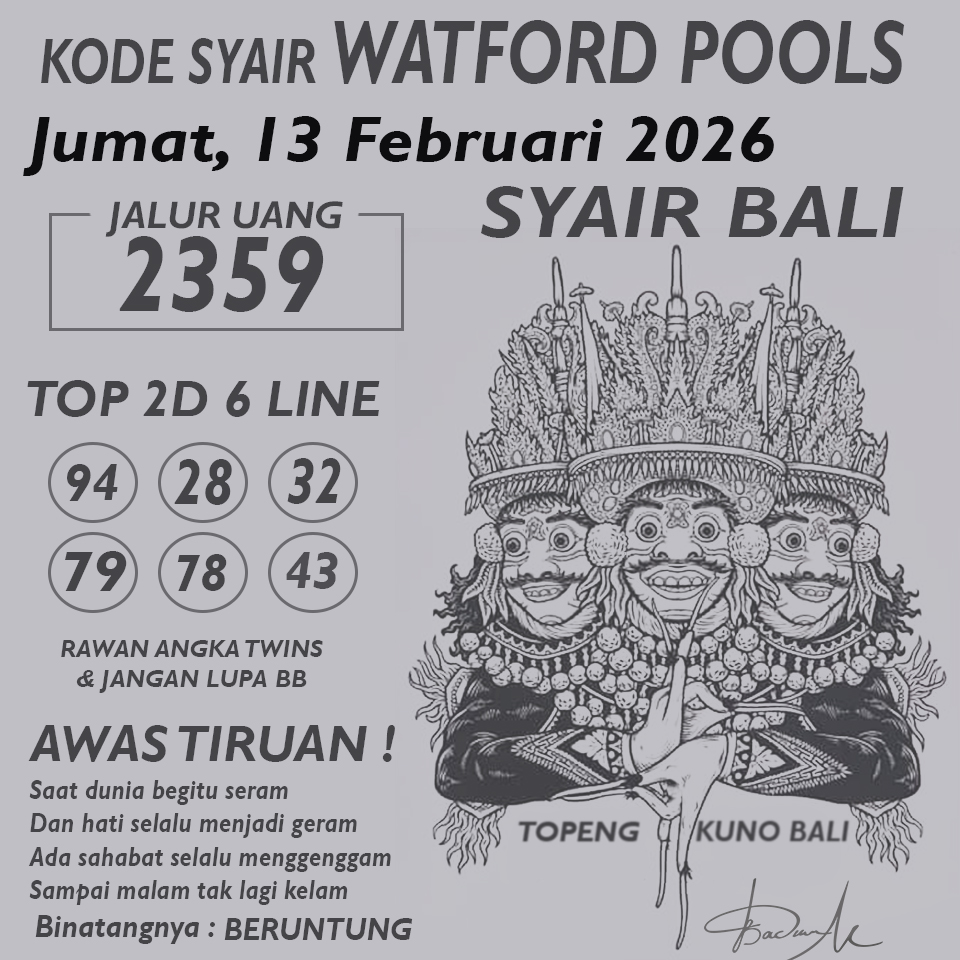 KODE SYAIR WATFORD POOLS
Jumat, 13 Februari 2026
SYAIR BALI
JALUR UANG
2359
TOP 2D 6 LINE
94 28 32
79 78 43
RAWAN ANGKA TWINS
& JANGAN LUPA BB
AWAS TIRUAN !
Saat dunia begitu seram
Dan hati selalu menjadi geram
Ada sahabat selalu menggenggam
Sampai malam tak lagi kelam
Binatangnya : BERUNTUNG
TOPENG KUNO BALI